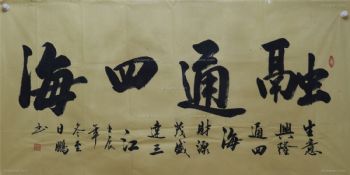 融通四海
生意
興隆
通四
海
財源
茂盛
達三
江
壬辰
年
冬至
日鵬
书